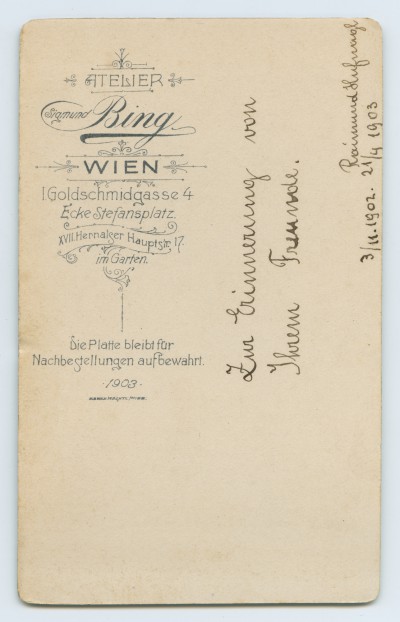 ATELIER
Sigmund Bing
WIEN
I Goldschmidgasse 4
Ecke Stefansplatz.
XVII. Hernalser Hauptstr. 17.
im Garten.
Die Platte bleibt für
Nachbestellungen aufbewahrt.
·1903·
Zur Erinnerung von
Ihrem Freunde.
Raimund
3/11.1902. 21/4 1903